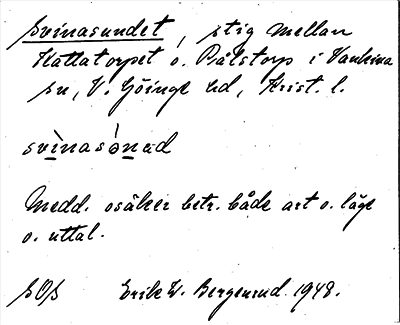 Svinasundet, stig mellan
Kättatorpet o. Pålstorp i Vankiva
sn, V. Göinge hd, Krist. l.
svìnasə́nəd
Medd. osäker betr. både art o. läge
o. uttal.
SOS Erik W. Bergenrud 1948.